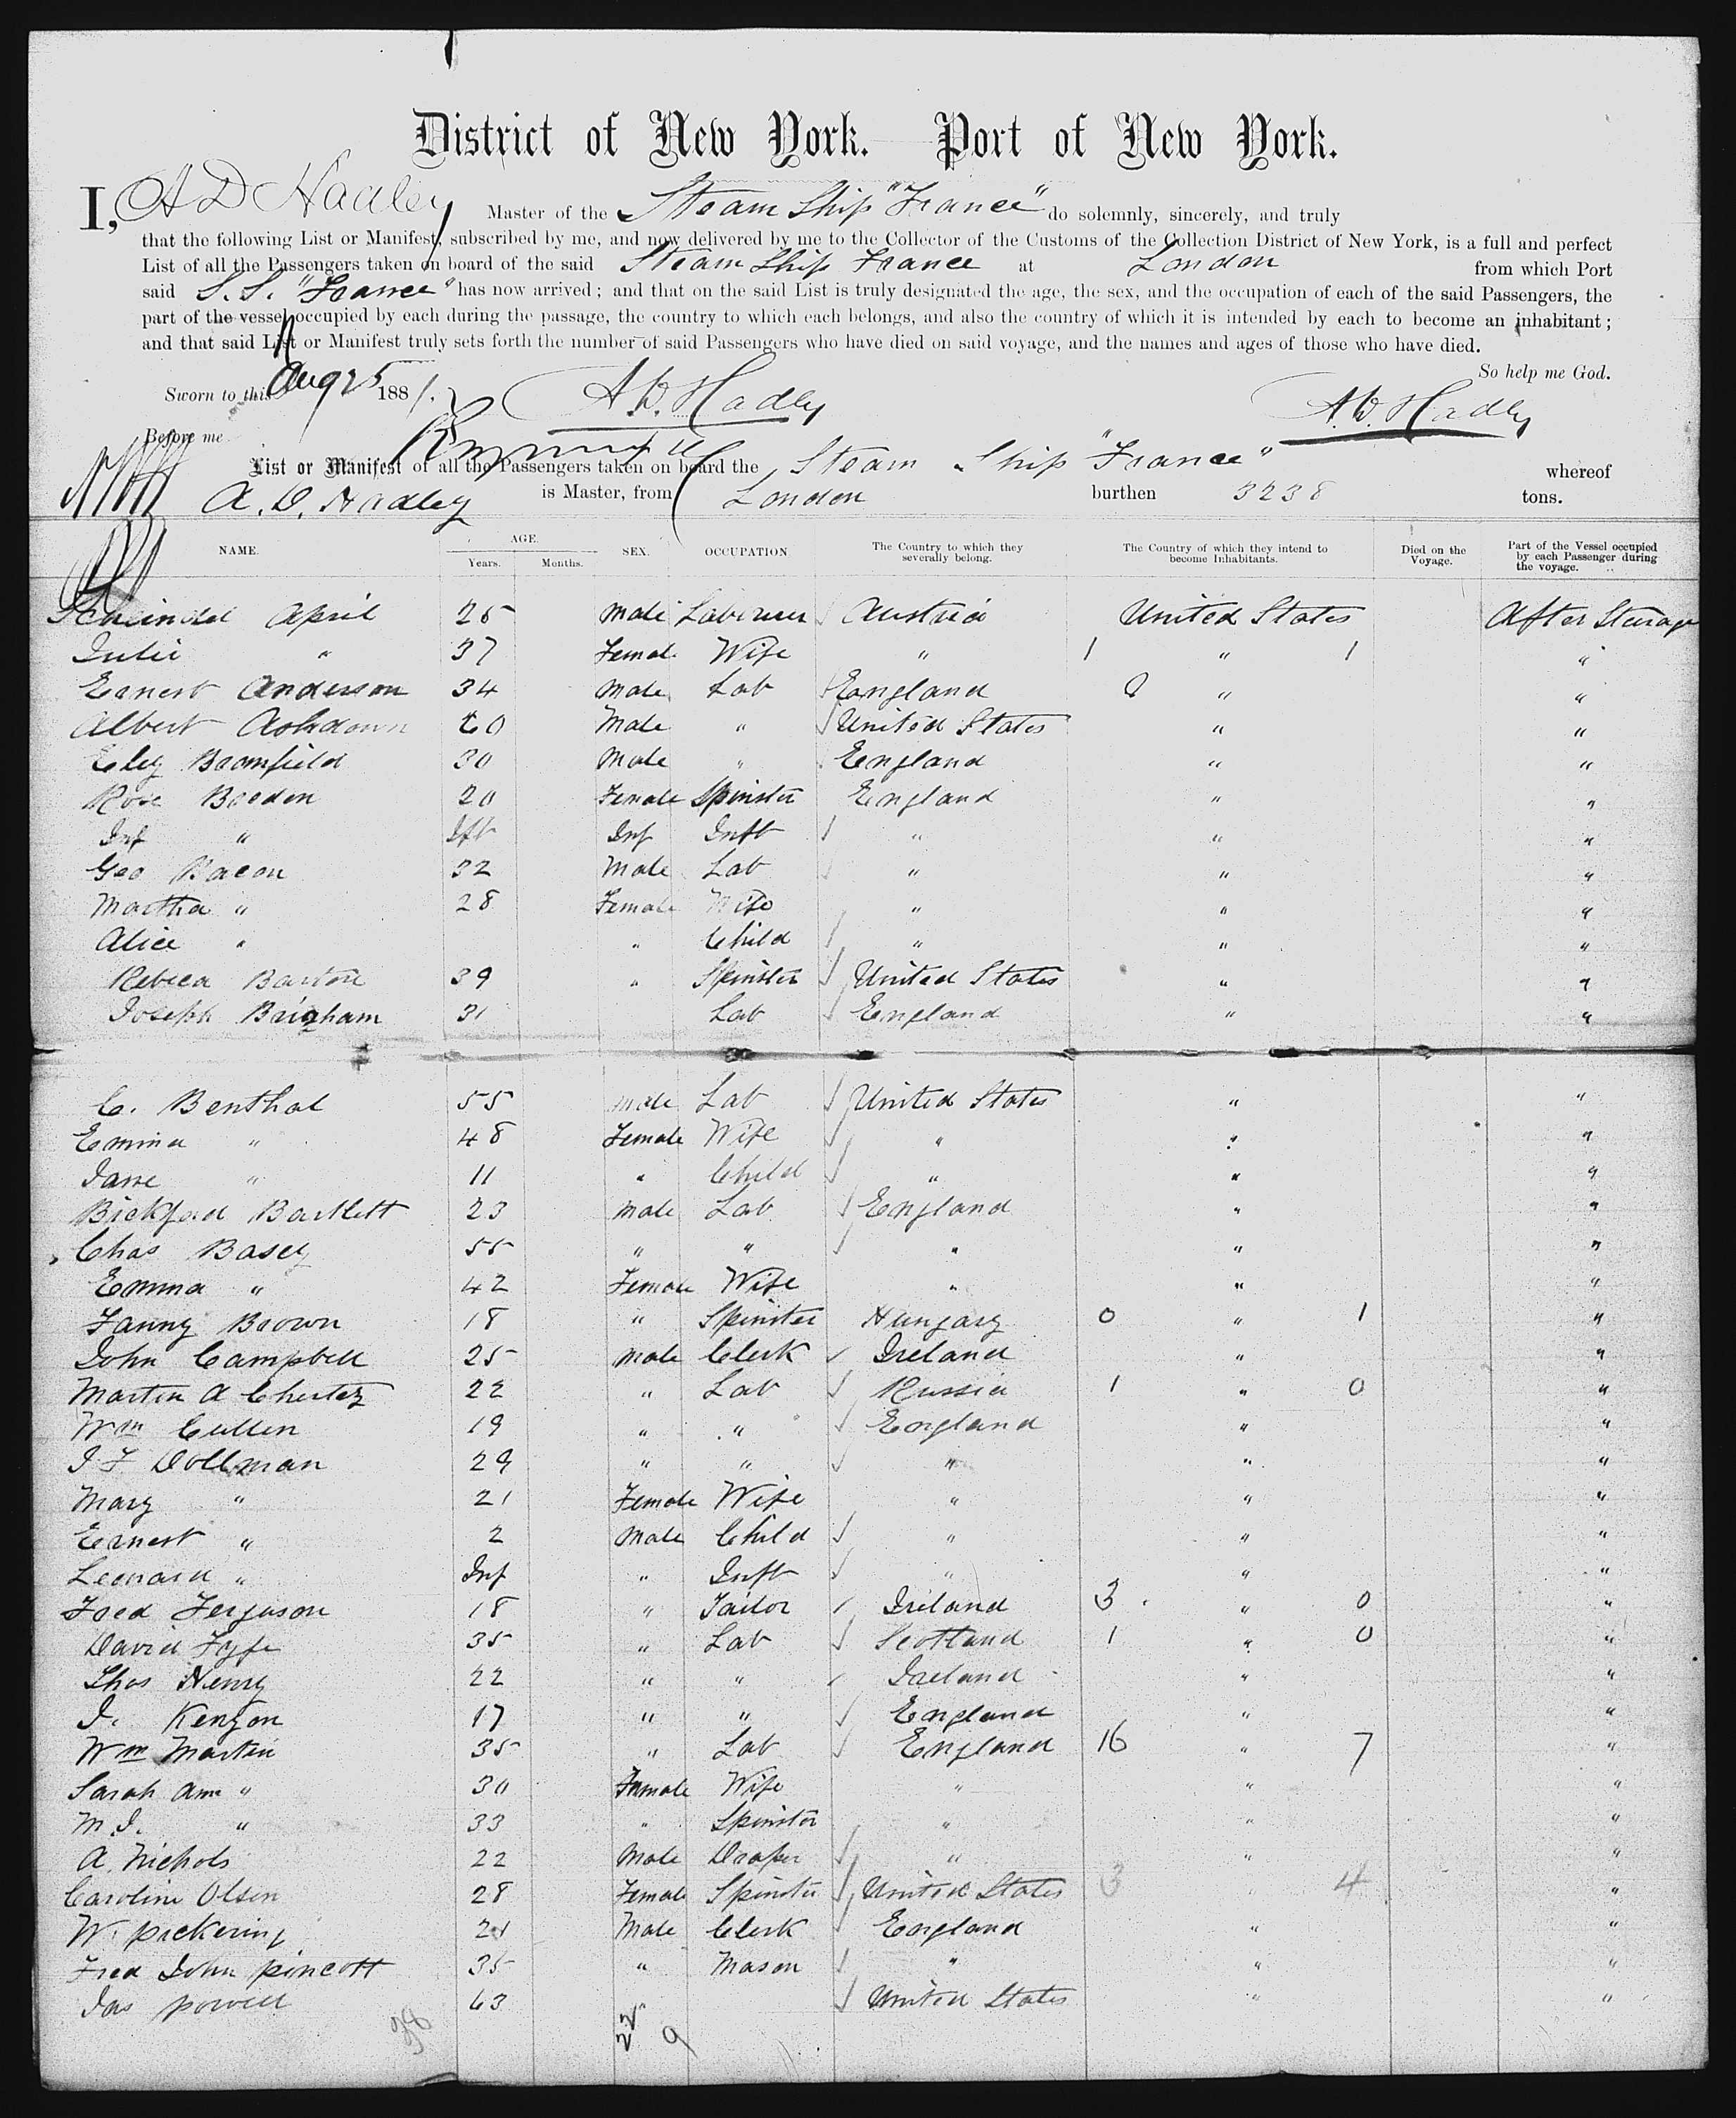 District of New York. Port of New York.
I, A D Hadley Master of the Steam Ship "France" do solemnly, sincerely, and truly
that the following List or Manifest, subscribed by me, and now delivered by me to the Collector of the Customs of the Collection District of New York, is a full and perfect
List of all the Passengers taken on board of the said Steam Ship France at London from which Port
said S.S. "France" has now arrived; and that on the said List is truly designated the age, the sex, and the occupation of each of the said Passengers, the
part of the vessel occupied by each during the passage, the country to which each belongs, and also the country of which it is intended by each to become an inhabitant;
and that said List or Manifest truly sets forth the number of said Passengers who have died on said voyage, and the names and ages of those who have died.
So help me God.
Sworn to this Aug 25 1881. A.D. Hadley A.D. Hadley
Before me
List or Manifest of all the Passengers taken on board the Steam Ship "France" whereof
A. D. Hadley is Master, from London burthen 3238 tons.
NAME. AGE. Years. Months. SEX. OCCUPATION The Country to which they severally belong. The Country of which they intend to become Inhabitants. Died on the Voyage. Part of the Vessel occupied by each Passenger during the voyage.
April 25 Male Labourer Austria United States After Sturage
Julie " 37 Female Wife " 1 " 1 "
Ernest Anderson 34 Male Lab England " "
Albert Ashdown 60 Male " United States " "
Eley Bromfield 30 Male " England " "
Rose Breeden 20 Female Spinster England " "
Inf " Ift Inf Inft " " "
Geo Bacon 32 Male Lab " " "
Martha " 28 Female Wife " " "
Alice " " Child " " "
Rebeca Bartore 39 " Spinster United States " "
Joseph Brigham 31 Lab England " "
C. Benthal 55 Male Lab United States " "
Emma " 48 Female Wife " " "
Jane " 11 " Child " " "
Bickford Bartlett 23 Male Lab England " "
Chas Basey 55 " " " " "
Emma " 42 Female Wife " " "
Fanny Brown 18 " Spinster Hungary 0 " 1 "
John Campbell 25 Male Clerk Ireland " "
Martin A Chertez 22 " Lab Russia 1 " 0 "
Wm Cullen 19 " " England " "
J F Dollman 29 " " " " "
Mary " 21 Female Wife " " "
Ernest " 2 Male Child " " "
Leonard " Inf " Inft " " "
Fred Ferguson 18 " Tailor Ireland 3 " 0 "
David Fyfe 35 " Lab Scotland 1 " 0 "
Thos Henry 22 " " Ireland " "
J. Kenyon 17 " " England " "
Wm Martin 35 " Lab England 16 " 7 "
Sarah Ann " 30 Female Wife " " "
M J. " 33 " Spinster " " "
A. Nichols 22 Male Draper " " "
Caroline Olsen 28 Female Spinster United States 3 " 4 "
W. Pickering 21 Male Clerk England " "
Fred John Pincott 35 " Mason " " "
Jas Powell 63 United States " "
38 22 9